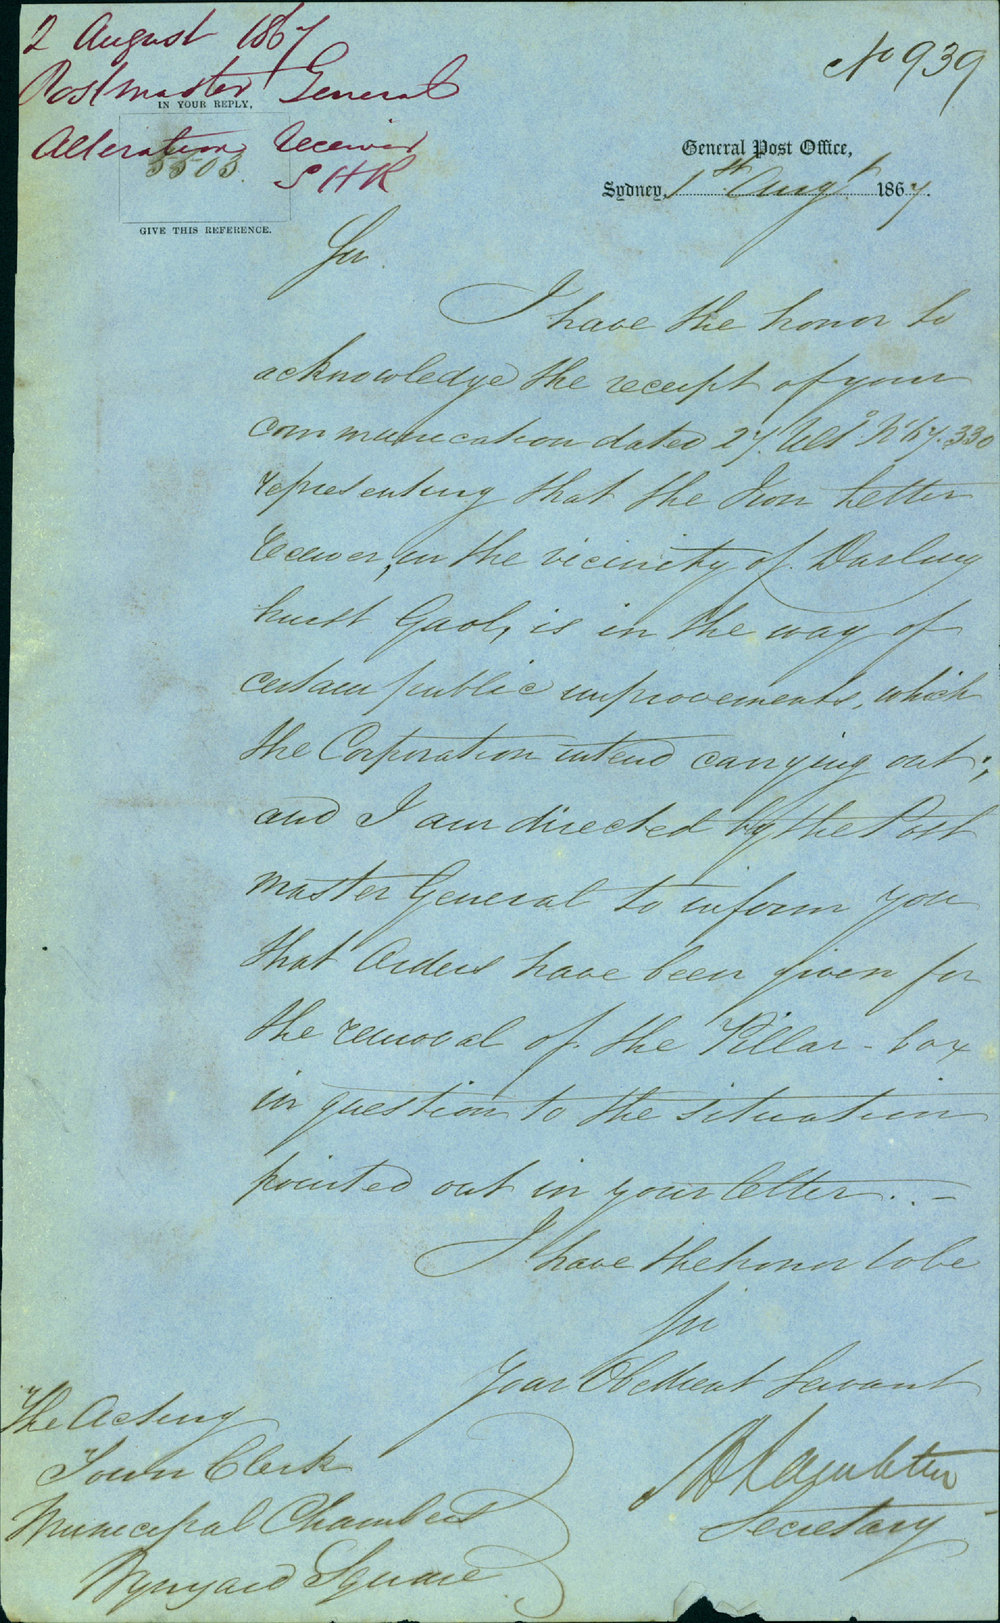 2 August 1867
Postmaster General
IN YOUR REPLY,
Alteration Receiver
5503
SHR
GIVE THIS REFERENCE.
No 939
General Post Office,
Sydney, 1st Augt 1867.
Sir
I have the honor to
acknowledge the receipt of your
communication dated 27 Ulto No 67.330
representing that the Iron Letter
Receiver, in the vicinity of Darling
hurst Gaol, is in the way of
certain public improvements, which
the Corporation intend carrying out;
and I am directed by the Post
master General to inform you
that Orders have been given for
the removal of the Pillar-box
in question to the situation
pointed out in your letter. . -
I have the honor to be
Sir
Your Obedient Servant
Secretary
The Acting
Town Clerk
Municipal Chambers
Wynyard Square